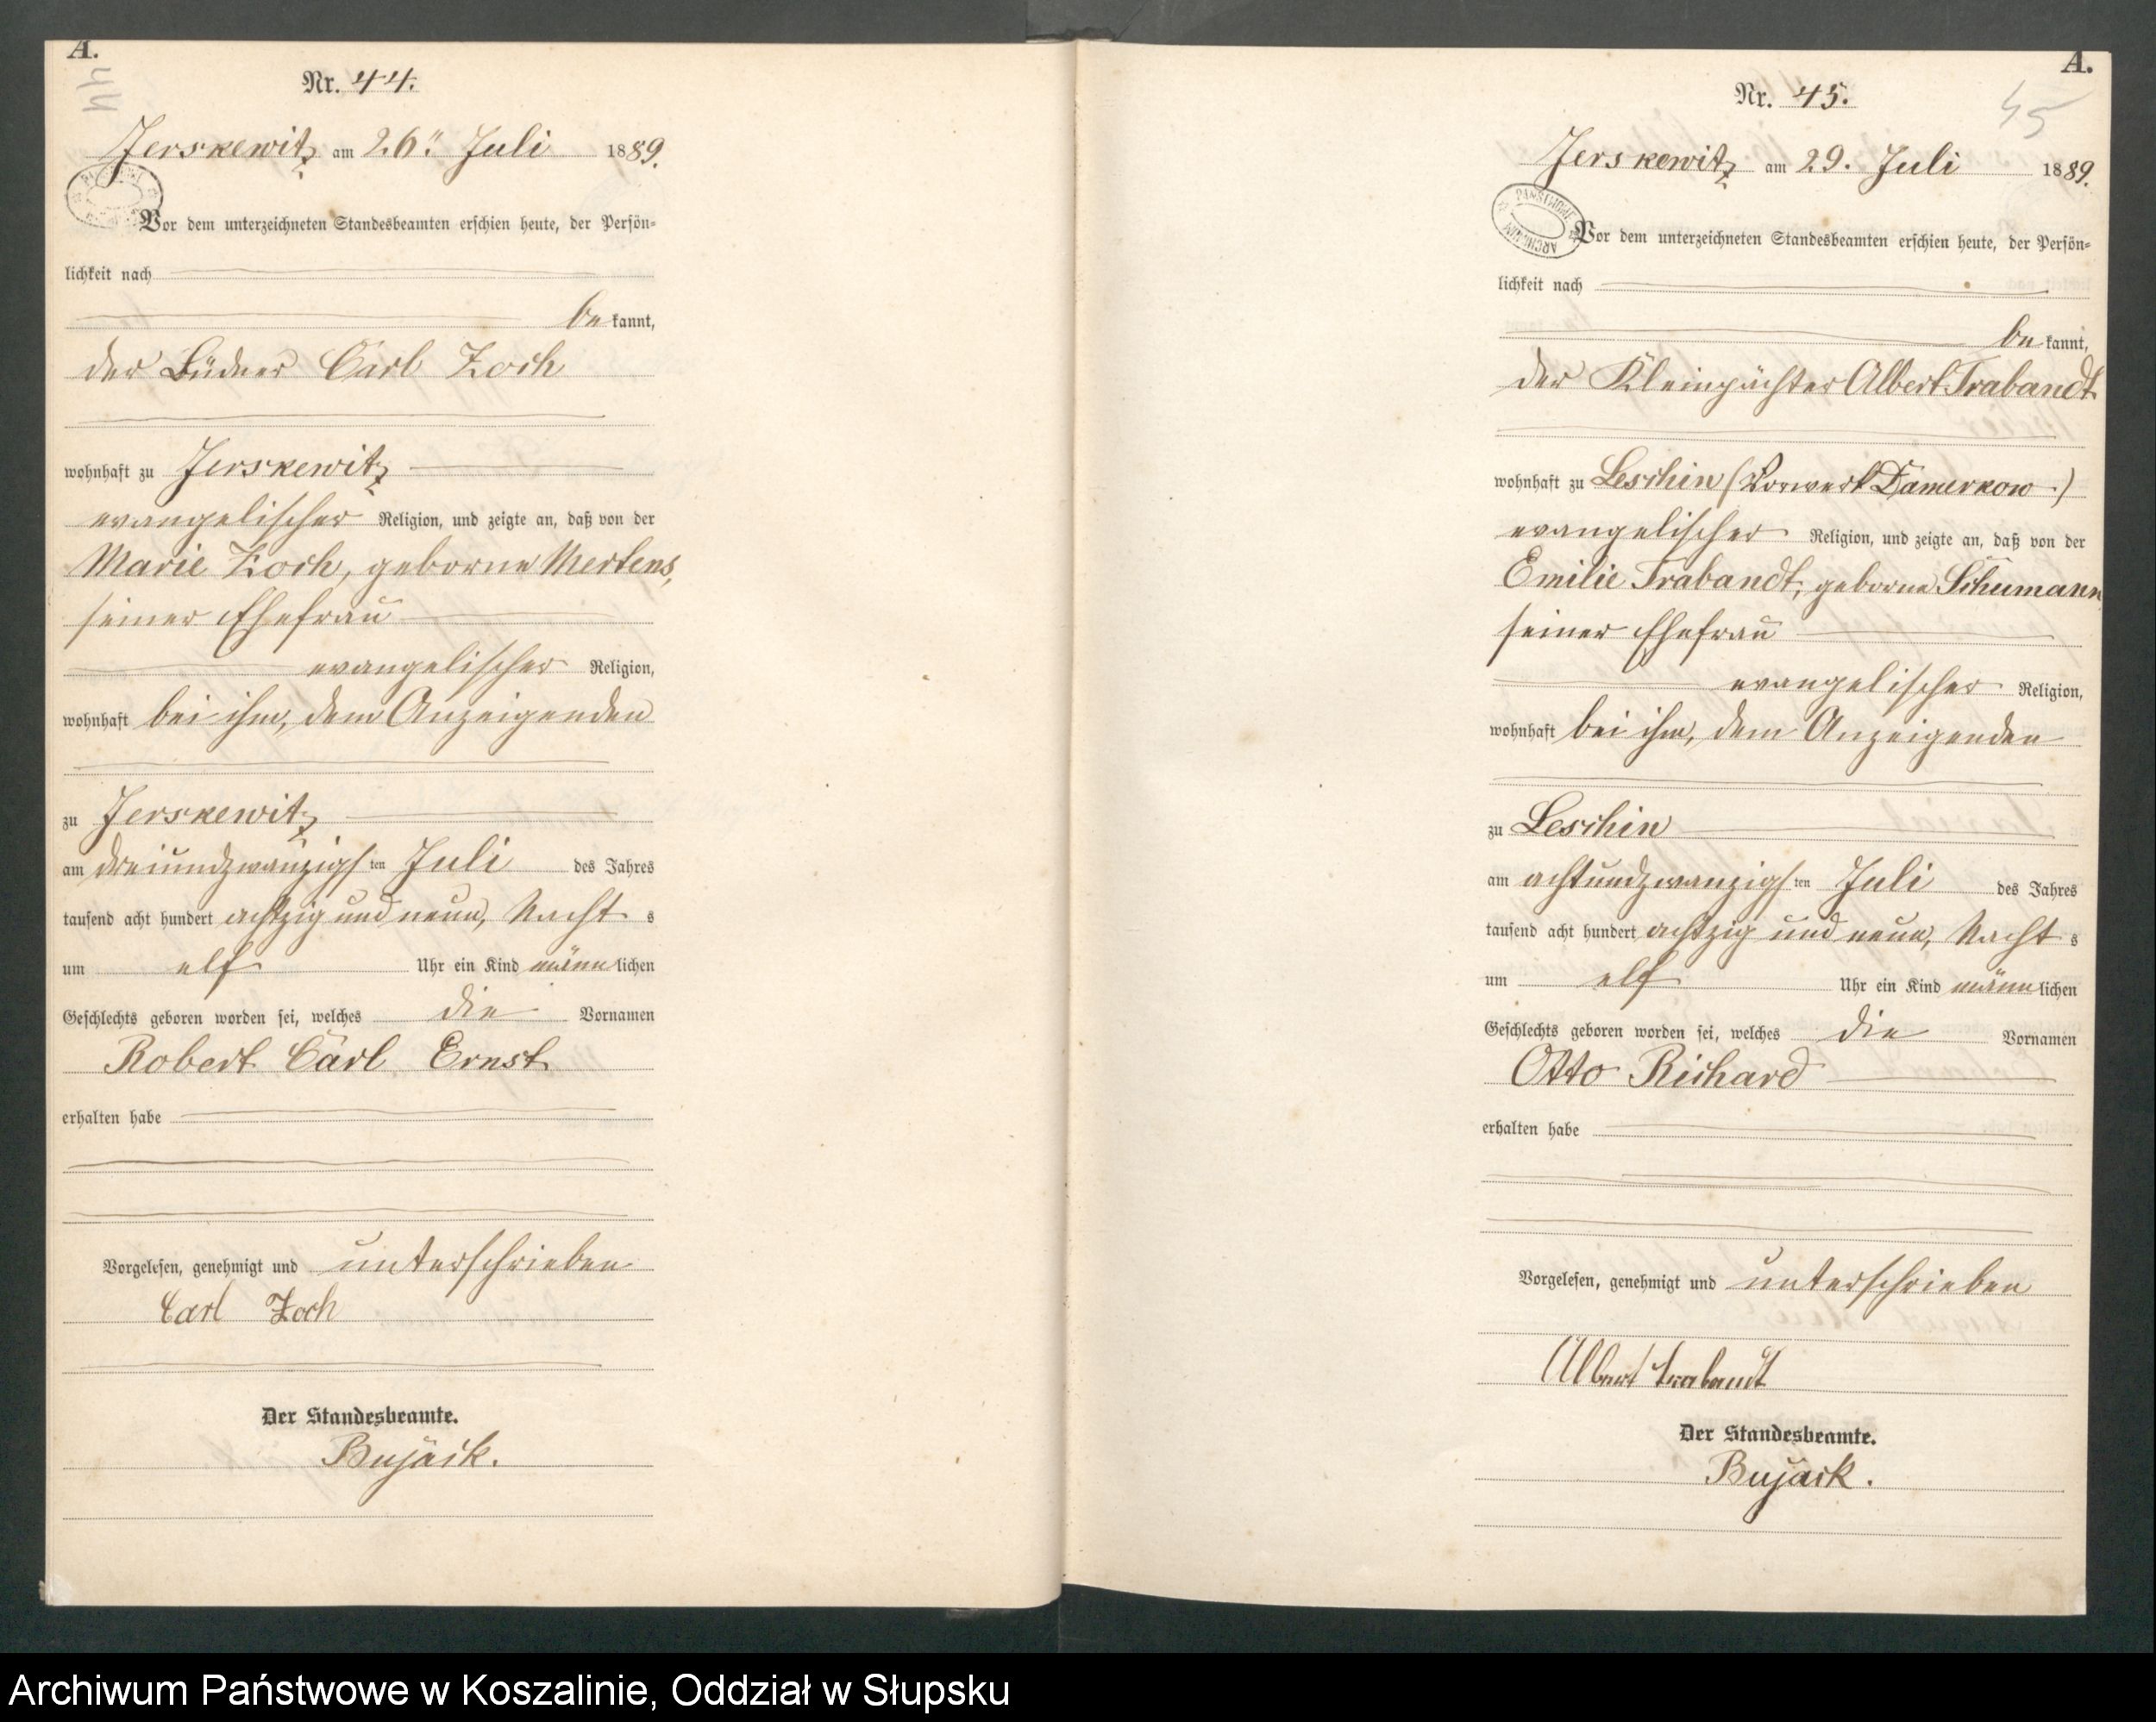 A.
44
Nr. 44.
Jerskewitz am 26ten Juli 1889.
Vor dem unterzeichneten Standesbeamten erschien heute, der Persön-
lichkeit nach
be kannt,
der Büdner Carl Zoch
wohnhaft zu Jerskewitz
evangelischer Religion, und zeigte an, daß von der
Marie Zoch, geborne Mertens,
seiner Ehefrau
evangelischer Religion,
wohnhaft bei ihm, dem Anzeigenden
zu Jerskewitz
am dreiundzwanzigsten Juli des Jahres
tausend acht hundert achtzig und neun, Nachts
um elf Uhr ein Kind männlichen
Geschlechts geboren worden sei, welches die Vornamen
Robert Carl Ernst
erhalten habe
Vorgelesen, genehmigt und unterschrieben
Carl Zoch
Der Standesbeamte.
Bujack.
A.
45
Nr. 45.
Jerskewitz am 29. Juli 1889.
PAŃSTWOWE ARCHIWUM
Vor dem unterzeichneten Standesbeamten erschien heute, der Persön-
lichkeit nach
be kannt,
der Kleinpächter Albert Trabandt
wohnhaft zu Leschin (Vorwerk Damerkow.)
evangelischer Religion, und zeigte an, daß von der
Emilie Trabandt, geborne Schumann
seiner Ehefrau
evangelischer Religion,
wohnhaft bei ihm, dem Anzeigenden
zu Leschin
am achtundzwanzigsten Juli des Jahres
tausend acht hundert achtzig und neun, Nachts
um elf Uhr ein Kind männlichen
Geschlechts geboren worden sei, welches die Vornamen
Otto Richard
erhalten habe
Vorgelesen, genehmigt und unterschrieben
Albert Trabandt
Der Standesbeamte.
Bujack.
Archiwum Państwowe w Koszalinie, Oddział w Słupsku